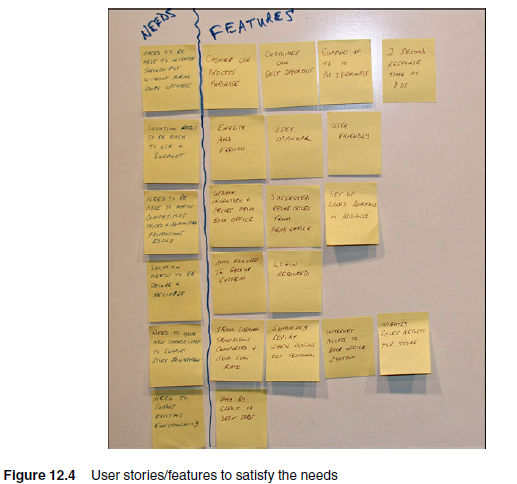 NEEDS
FEATURES
NEED TO BE
ABLE TO INCREASE
THROUGH PUT
WITHOUT HIRING
MORE WORKERS
CASHIER CAN
PROCESS
PURCHASE
CUSTOMER
CAN
SELF CHECKOUT
SUPPORT UP
TO 10
POS TERMINALS
2 SECOND
RESPONSE
TIME AT
POS
SOLUTION NEEDS
TO BE EASY
TO USE &
SUPPORT
ENGLISH
AND
FRENCH
USER
MANUAL
USER
FRIENDLY
NEED TO BE
ABLE TO MATCH
COMPETITORS
PRICES &
PROMOTIONS
EASILY
UPDATE
INVENTORY &
PRICES FROM
BACK OFFICE
SUGGESTED
RETAIL PRICES
FROM
OFFICE
SET UP
SALES
IN ADVANCE
SOLUTION
NEEDS TO BE
SECURE &
RELIABLE
AUTO
TO BACKUP
SYSTEM
LOGIN
REQUIRED
NEED TO HAVE
NEW CAPABILITIES
TO SUPPORT
STORE MANAGEMENT
TRACK CASHIER
TRANSACTIONS
COMPLETED &
ITEM SCAN
RATE
SUMMARY
REPORT
WHEN CLOSING
OUT TERMINAL
INTERNET
ACCESS TO
BACK OFFICE
SYSTEM
NIGHTLY
SALES REPORT
FOR STORE
NEED TO
SUPPORT
EXISTING
FUNCTIONALITY
PAY BY
CREDIT OR
DEBIT CARD
Figure 12.4 User stories/features to satisfy the needs